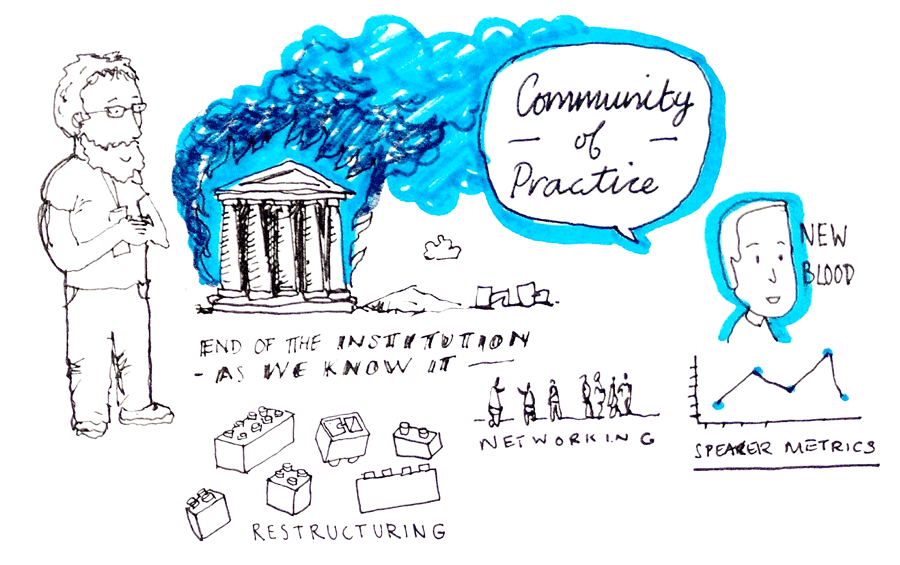 Community
— of —
Practice
NEW
BLOOD
END OF THE INSTITUTION
- AS WE KNOW IT —
NETWORKING
SPEAKER METRICS
RESTRUCTURING